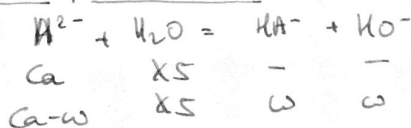 A²⁻ + H₂O = HA⁻ + HO⁻
Ca XS — —
Ca-ω XS ω ω